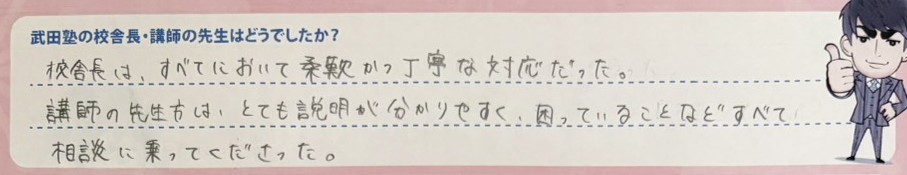 武田塾の校舎長・講師の先生はどうでしたか？
校舎長は、すべてにおいて柔軟かつ丁寧な対応だった。
講師の先生方は、とても説明が分かりやすく、困っていることなどすべて
相談に乗ってくださった。